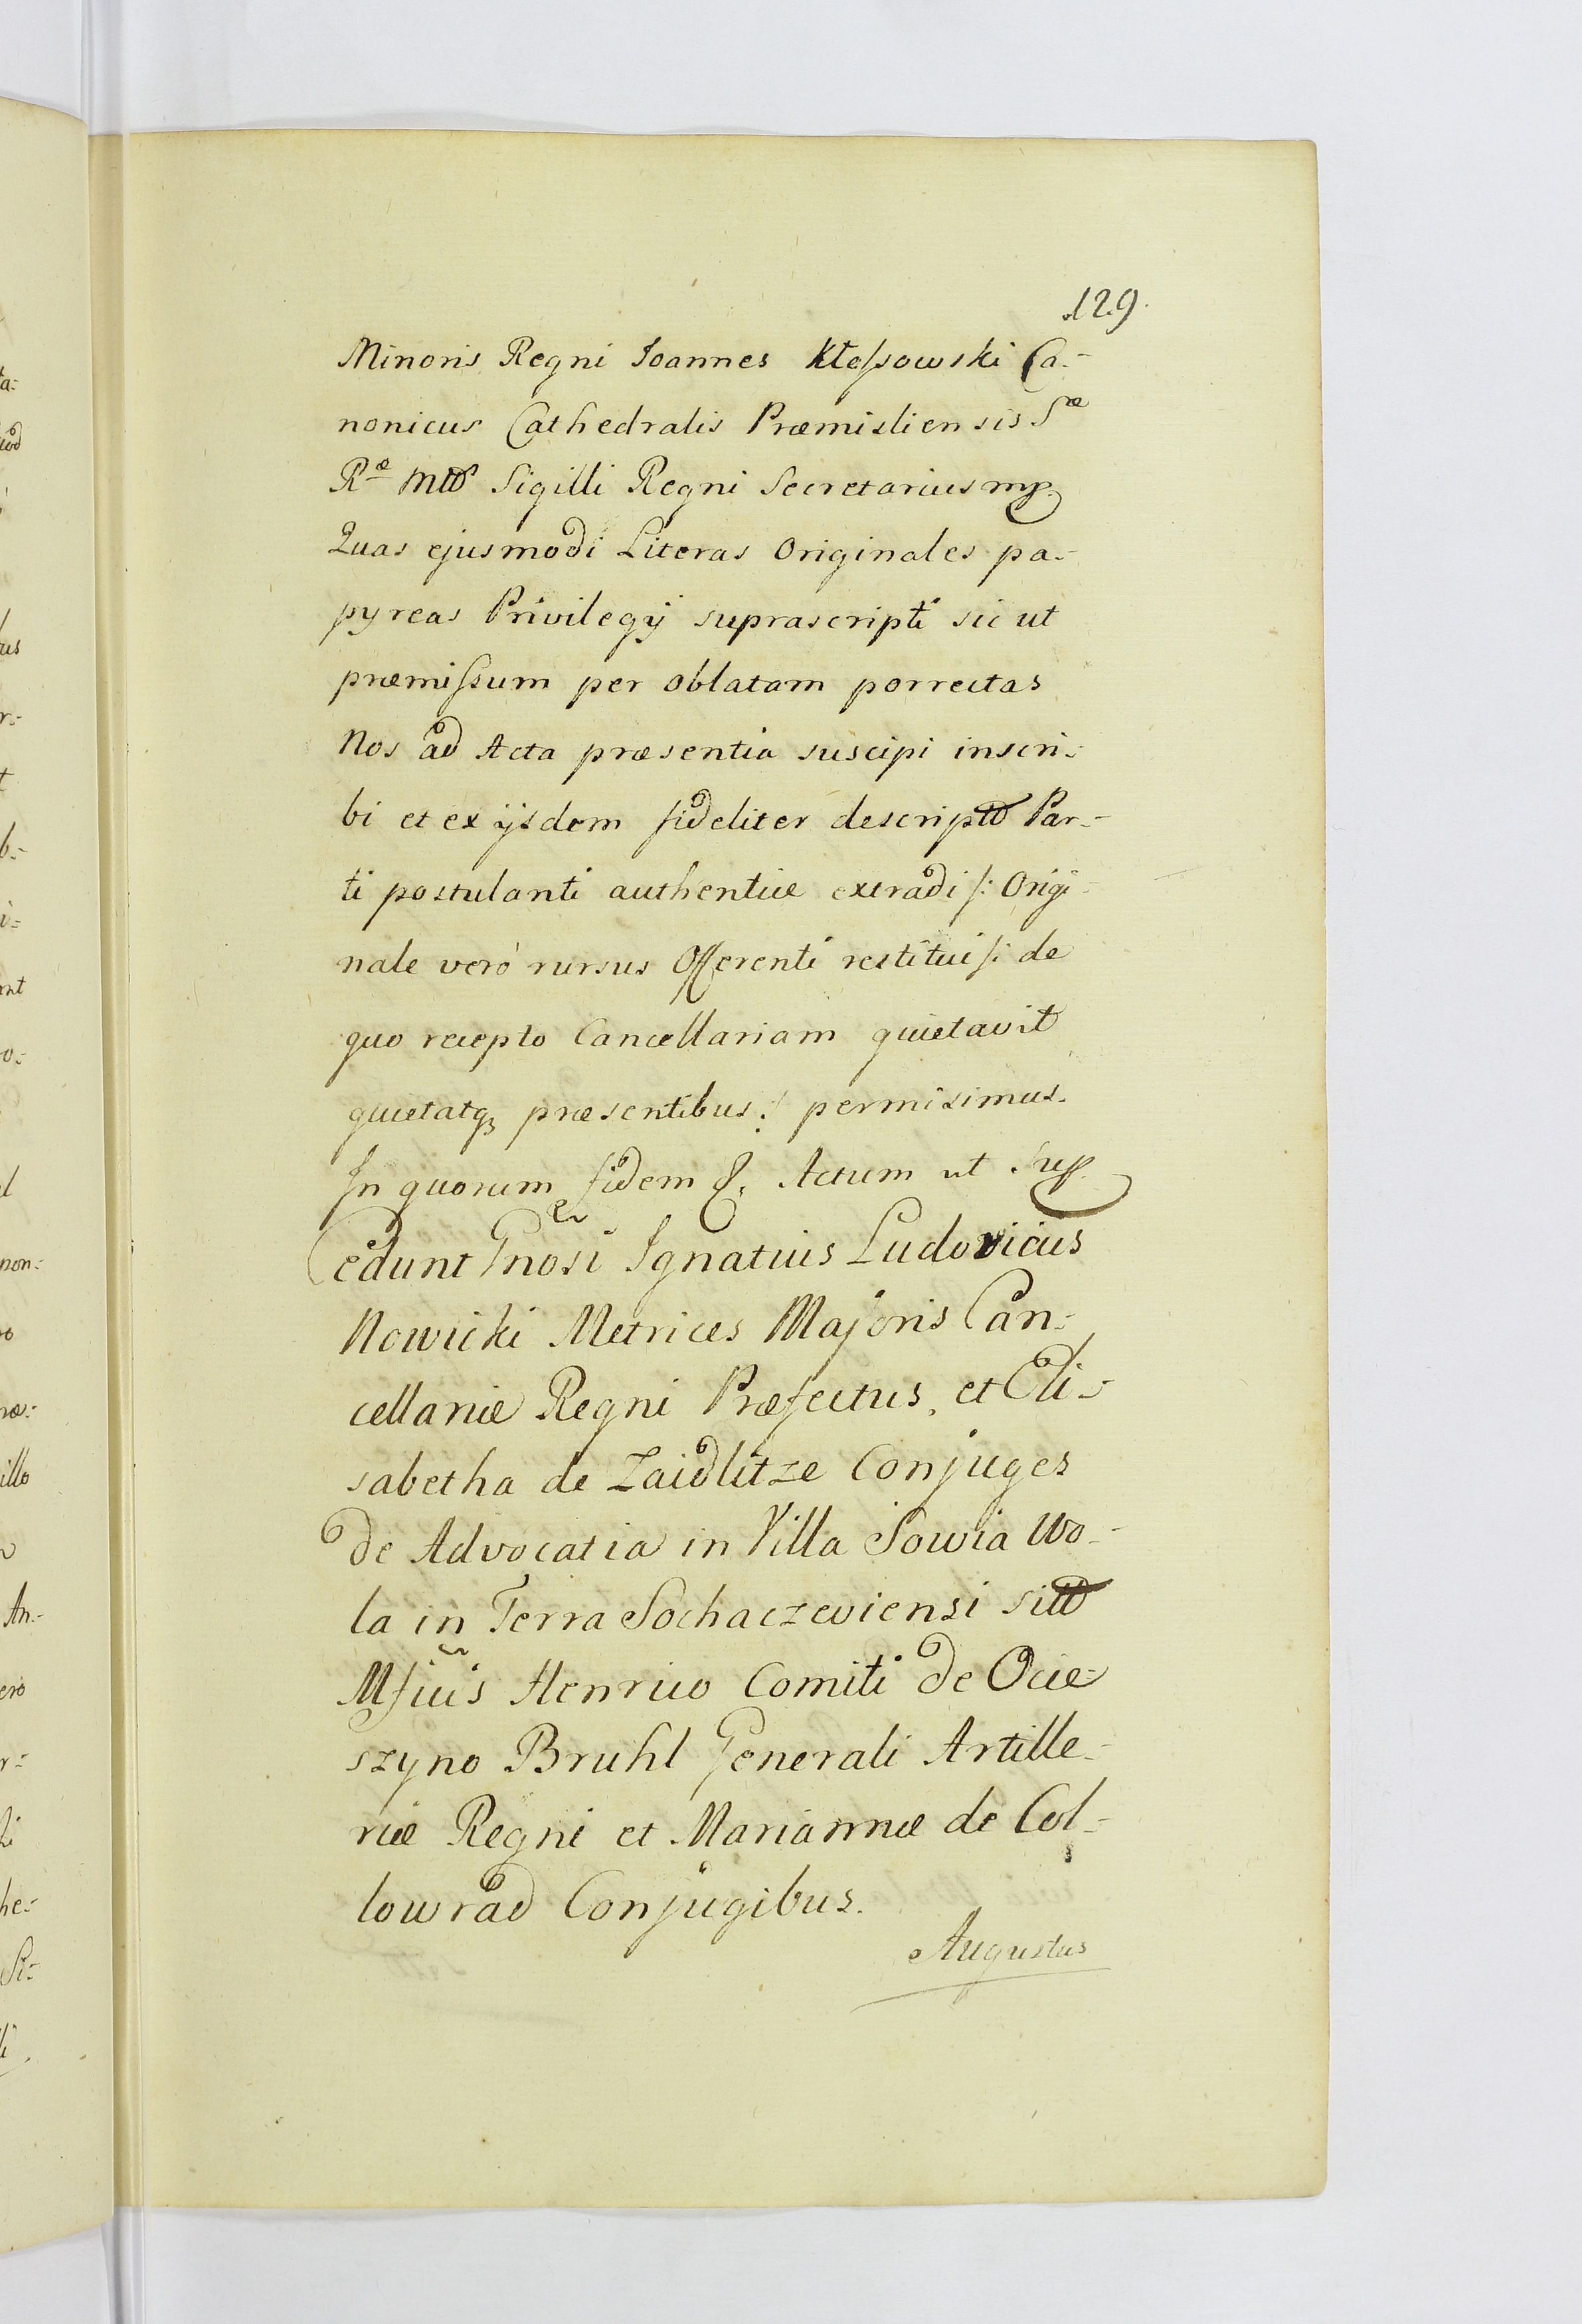 129.
Minoris Regni Joannes Kłossowski Ca-
nonicus Cathedralis Præmisliensis Sæ
Ræ Mtis Sigilli Regni Secretarius mp.
Quas ejusmodi Literas Originales pa-
pyreas Privilegij suprascripti sic ut
præmissum per oblatam porrectas
Nos ad Acta præsentia suscipi inscri-
bi et ex ijsdem fideliter descriptas Par-
ti postulanti authentice extradi /: Origi-
nale verò rursus Offerenti restitui /: de
quo recepto Cancellariam quietavit
quietatq; præsentibus :/ permisimus.
In quorum fidem &. Actum ut Sup.
Cedunt Gnosi Ignatius Ludovicus
Nowicki Metrices Majoris Can-
cellariæ Regni Præfectus, et Eli-
sabetha de Zaidlitze Conjuges
de Advocatia in Villa Sowia Wo-
la in Terra Sochaczeviensi sita
Mficis Henrico Comiti de Ocie-
szyno Bruhl Generali Artille-
riæ Regni et Mariannæ de Col-
lowrad Conjugibus.
Augustus
a:
us
r:-
t
b:-
i=
ant
o:-
non:
illo
An:-
ero
r=
he:
Si: